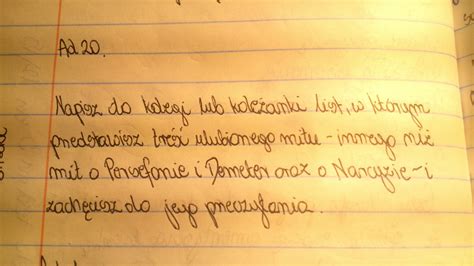 Ad 20.
Napisz do kolegi lub koleżanki list, w którym
przedstawisz treść ulubionego mitu - innego niż
mit o Persefonie i Demeter oraz o Narcyzie - i
zachęcisz do jego przeczytania.